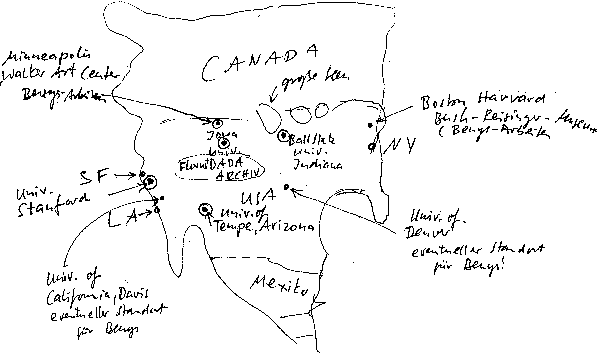 Minneapolis
Walker Art Center
Beuys-Arbeiten
CANADA
große Seen
Boston Harvard
Bush-Reisinger-Museum
(Beuys-Arbeiten
NY
Iowa
Univ.
FluxusDADA
ARCHIV
Ball State
Univ.
Indiana
SF
Univ.
Stanford
LA
USA
Univ. of
Tempe, Arizona
Univ. of
Denver
eventueller Standort
für Beuys!
Univ. of
California, Davis
eventueller Standort
für Beuys
Mexico